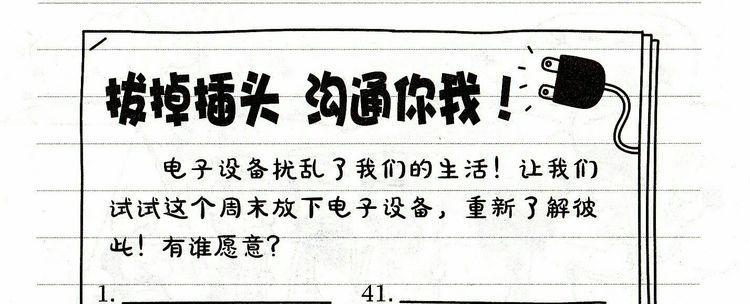 拔掉插头 沟通你我！
电子设备扰乱了我们的生活！让我们
试试这个周末放下电子设备，重新了解彼
此！有谁愿意？
1. 41.